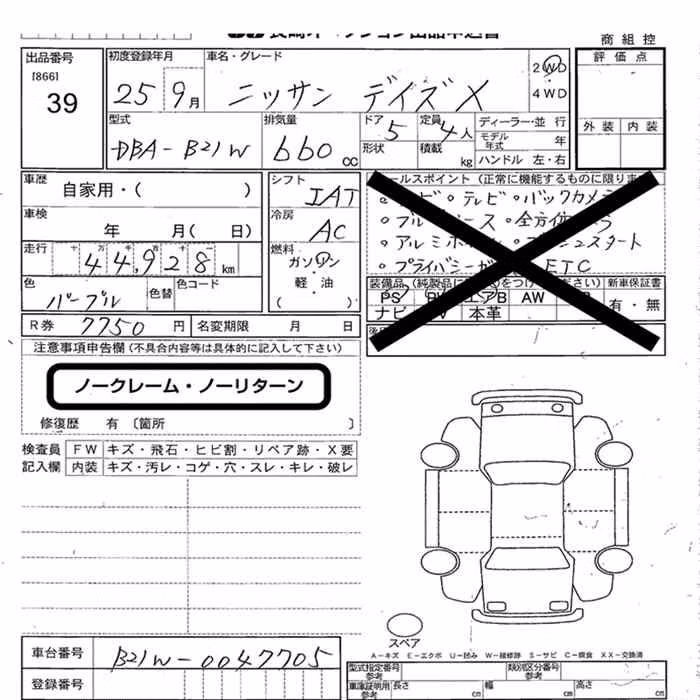 商組控
出品番号
[866]
39
初度登録年月
25 9月
車名・グレード
ニッサン デイズX
2WD
4WD
評価点
外装 内装
型式
DBA-B21W
排気量
660 cc
ドア 5
形状
定員 4人
積載 kg
ディーラー・並行
モデル年式 年
ハンドル 左・右
車歴
自家用・( )
車検
年 月( 日)
走行 十 万 千 百 十 一
44,928 km
色
パープル
色替
色コード
シフト
IAT
冷房
AC
燃料
ガソリン
軽・油
( )
セールスポイント(正常に機能するものに限ります
。テレビ 。バックカメラ
。アルミホイール
。プライバシーガラス ETC
装備品(純製品に をつけ ださい) 新車保証書
PS PW エアB AW
ナビ TV 本革
有・無
R券 7750 円
名変期限 月 日
注意事項申告欄(不具合内容等は具体的に記入して下さい)
ノークレーム・ノーリターン
修復歴 有〔箇所 〕
検査員 FW キズ・飛石・ヒビ割・リペア跡・X要
記入欄 内装 キズ・汚レ・コゲ・穴・スレ・キレ・破レ
スペア
A-キズ E-エクボ U-凹み W-補修跡 S-サビ C-腐食 XX-交換済
車台番号 B21W-0047705
登録番号
型式指定番号 参考
類別区分番号 参考
車庫証明用 参考
長さ cm 幅 cm 高さ cm